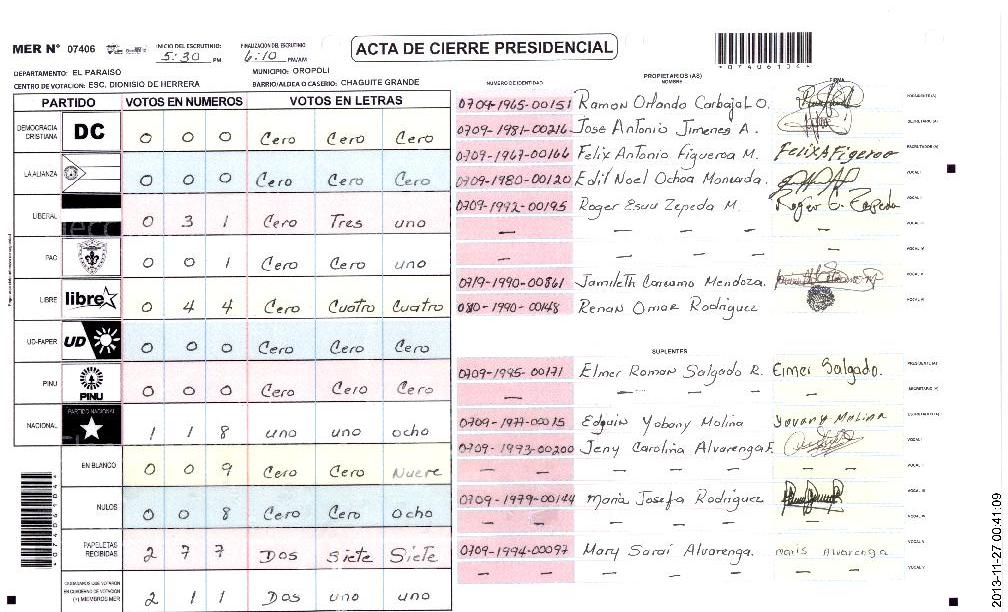 MER N° 07406
INICIO DEL ESCRUTINIO:
5:30 PM
FINALIZACION DEL ESCRUTINIO
6:10 PM/AM
ACTA DE CIERRE PRESIDENCIAL
DEPARTAMENTO: EL PARAISO
MUNICIPIO: OROPOLI
CENTRO DE VOTACION: ESC. DIONISIO DE HERRERA
BARRIO/ALDEA O CASERIO: CHAGUITE GRANDE
PARTIDO VOTOS EN NUMEROS VOTOS EN LETRAS
DEMOCRACIA CRISTIANA DC 0 0 0 Cero Cero Cero
LA ALIANZA 0 0 0 Cero Cero Cero
LIBERAL 0 3 1 Cero Tres uno
PAC 0 0 1 Cero Cero uno
LIBRE libre 0 4 4 Cero Cuatro Cuatro
UD-FAPER UD 0 0 0 Cero Cero Cero
PINU PINU 0 0 0 Cero Cero Cero
NACIONAL PARTIDO NACIONAL 1 1 8 uno uno ocho
EN BLANCO 0 0 9 Cero Cero Nueve
NULOS 0 0 8 Cero Cero ocho
PAPELETAS RECIBIDAS 2 7 7 Dos Siete Siete
CIUDADANOS QUE VOTARON EN CUADERNO DE VOTACION (+) MIEMBROS MER 2 1 1 Dos uno uno
NUMERO DE IDENTIDAD
PROPIETARIOS (AS)
NOMBRE
FIRMA
0704-1965-00151 Ramon Orlando Carbajal O. PRESIDENTE (A)
0709-1981-00216 Jose Antonio Jimenes A. SECRETARIO (A)
0709-1967-00166 Felix Antonio Figueroa M. Felix A Figeroa ESCRUTADOR (A)
0709-1980-00120 Edit Noel Ochoa Moncada. VOCAL I
0709-1992-00195 Roger Esau Zepeda M. Roger E. Zepeda VOCAL II
— — — — VOCAL III
— — — — VOCAL IV
0719-1990-00861 Jamileth Carcamo Mendoza. VOCAL V
080-1990-00148 Renan Omar Rodriguez
SUPLENTES
0709-1995-00171 Elmer Roman Salgado R. Elmer Salgado. PRESIDENTE (A)
— — — — SECRETARIO (A)
0709-1977-00015 Edguin Yobany Molina Yovany Molina ESCRUTADOR (A)
0709-1993-00200 Jeny Carolina Alvarenga F. VOCAL I
— — — — — — VOCAL II
0709-1979-00144 Maria Josefa Rodriguez VOCAL III
— — — — — VOCAL IV
0709-1994-00097 Mary Sarai Alvarenga. Maris Alvarenga VOCAL V
— — — — — — VOCAL VI
07406104
2013-11-27 00:41:09